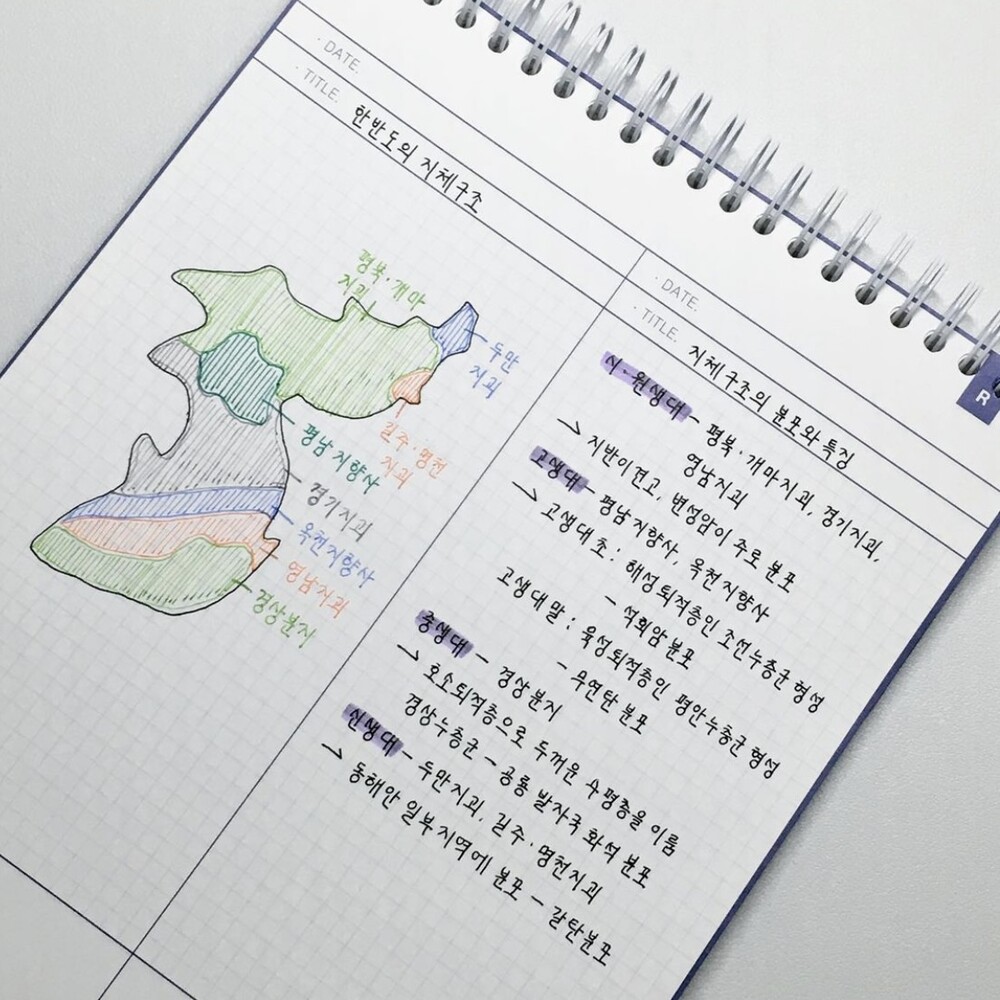 · DATE.
· TITLE. 한반도의 지체구조
평북·개마
지괴
두만
지괴
길주·명천
지괴
평남지향사
경기지괴
옥천지향사
영남지괴
경상분지
· DATE.
· TITLE. 지체구조의 분포와 특징
시·원생대 - 평북·개마지괴, 경기지괴,
영남지괴
→ 지반이견고, 변성암이 주로 분포
고생대 - 평남지향사, 옥천지향사
→ 고생대초 : 해성퇴적층인 조선누층군형성
- 석회암분포
고생대말 : 육성퇴적층인 평안누층군형성
- 무연탄분포
중생대 - 경상분지
→ 호소퇴적층으로 두꺼운 수평층을이룸
경상누층군 - 공룡 발자국 화석 분포
신생대 - 두만지괴, 길주·명천지괴
→ 동해안 일부지역에 분포 - 갈탄분포
R